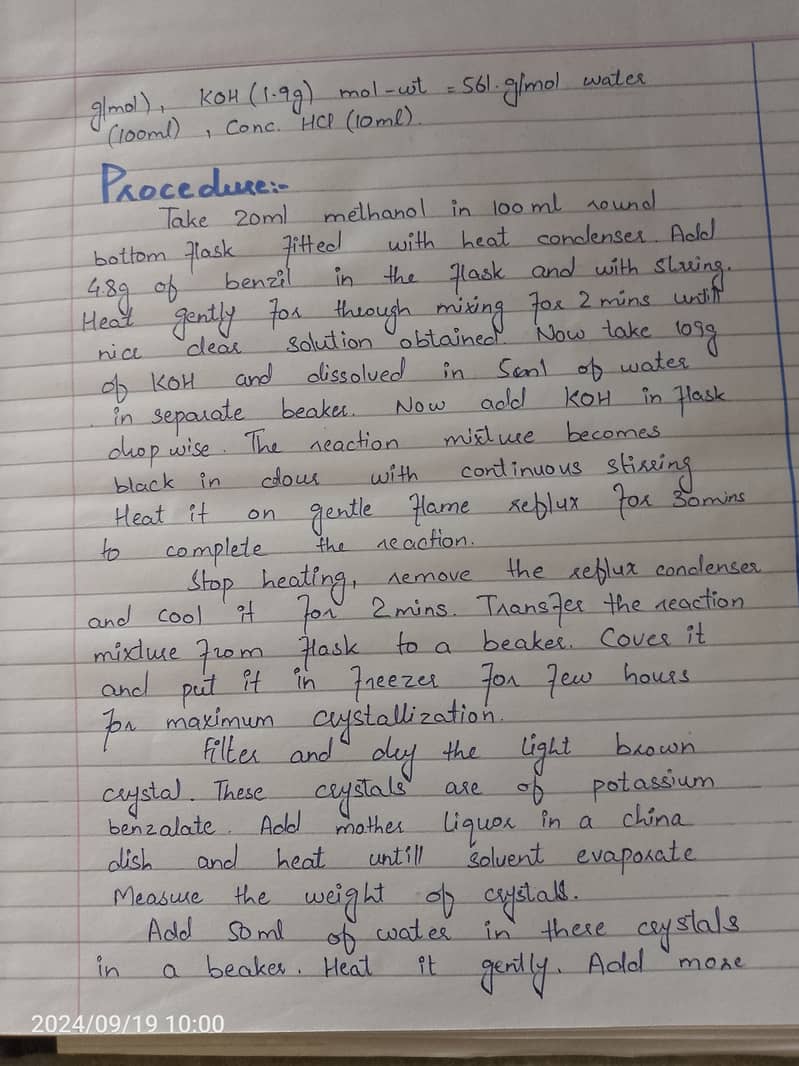 g/mol), KOH (1.9g) mol-wt = 561. g/mol water
(100ml), Conc. HCl (10ml).
Procedure:-
Take 20ml methanol in 100 ml round
bottom flask fitted with heat condenses. Add
4.8g of benzil in the flask and with stirring.
Heat gently for through mixing for 2 mins untill
nice clear solution obtained. Now take 1.9g
of KOH and dissolved in 5ml of water
in separate beaker. Now add KOH in flask
drop wise. The reaction mixture becomes
black in colour with continuous stirring
Heat it on gentle flame reflux for 30mins
to complete the reaction.
Stop heating, remove the reflux condenser
and cool it for 2 mins. Transfer the reaction
mixture from flask to a beaker. Cover it
and put it in freezer for few hours
for maximum crystallization.
Filter and dry the light brown
crystal. These crystals are of potassium
benzalate. Add mother liquor in a china
dish and heat untill solvent evaporate
Measure the weight of crystals.
Add 50 ml of water in these crystals
in a beaker. Heat it gently. Add more
2024/09/19 10:00